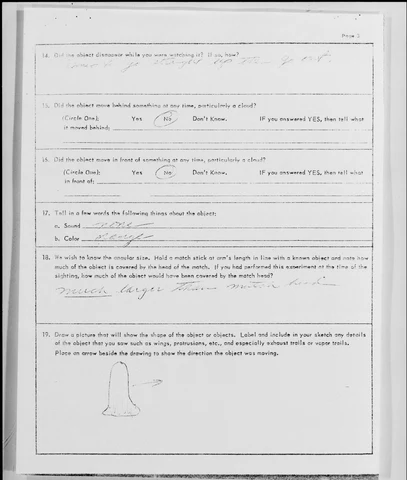 Page 3
14. Did the object disappear while you were watching it? If so, how?
straight up
15. Did the object move behind something at any time, particularly a cloud?
(Circle One): Yes No Don't Know. IF you answered YES, then tell what
it moved behind:
16. Did the object move in front of something at any time, particularly a cloud?
(Circle One): Yes No Don't Know. IF you answered YES, then tell what
in front of:
17. Tell in a few words the following things about the object:
a. Sound none
b. Color orange
18. We wish to know the angular size. Hold a match stick at arm's length in line with a known object and note how
much of the object is covered by the head of the match. If you had performed this experiment at the time of the
sighting, how much of the object would have been covered by the match head?
much larger than match head
19. Draw a picture that will show the shape of the object or objects. Label and include in your sketch any details
of the object that you saw such as wings, protrusions, etc., and especially exhaust trails or vapor trails.
Place an arrow beside the drawing to show the direction the object was moving.